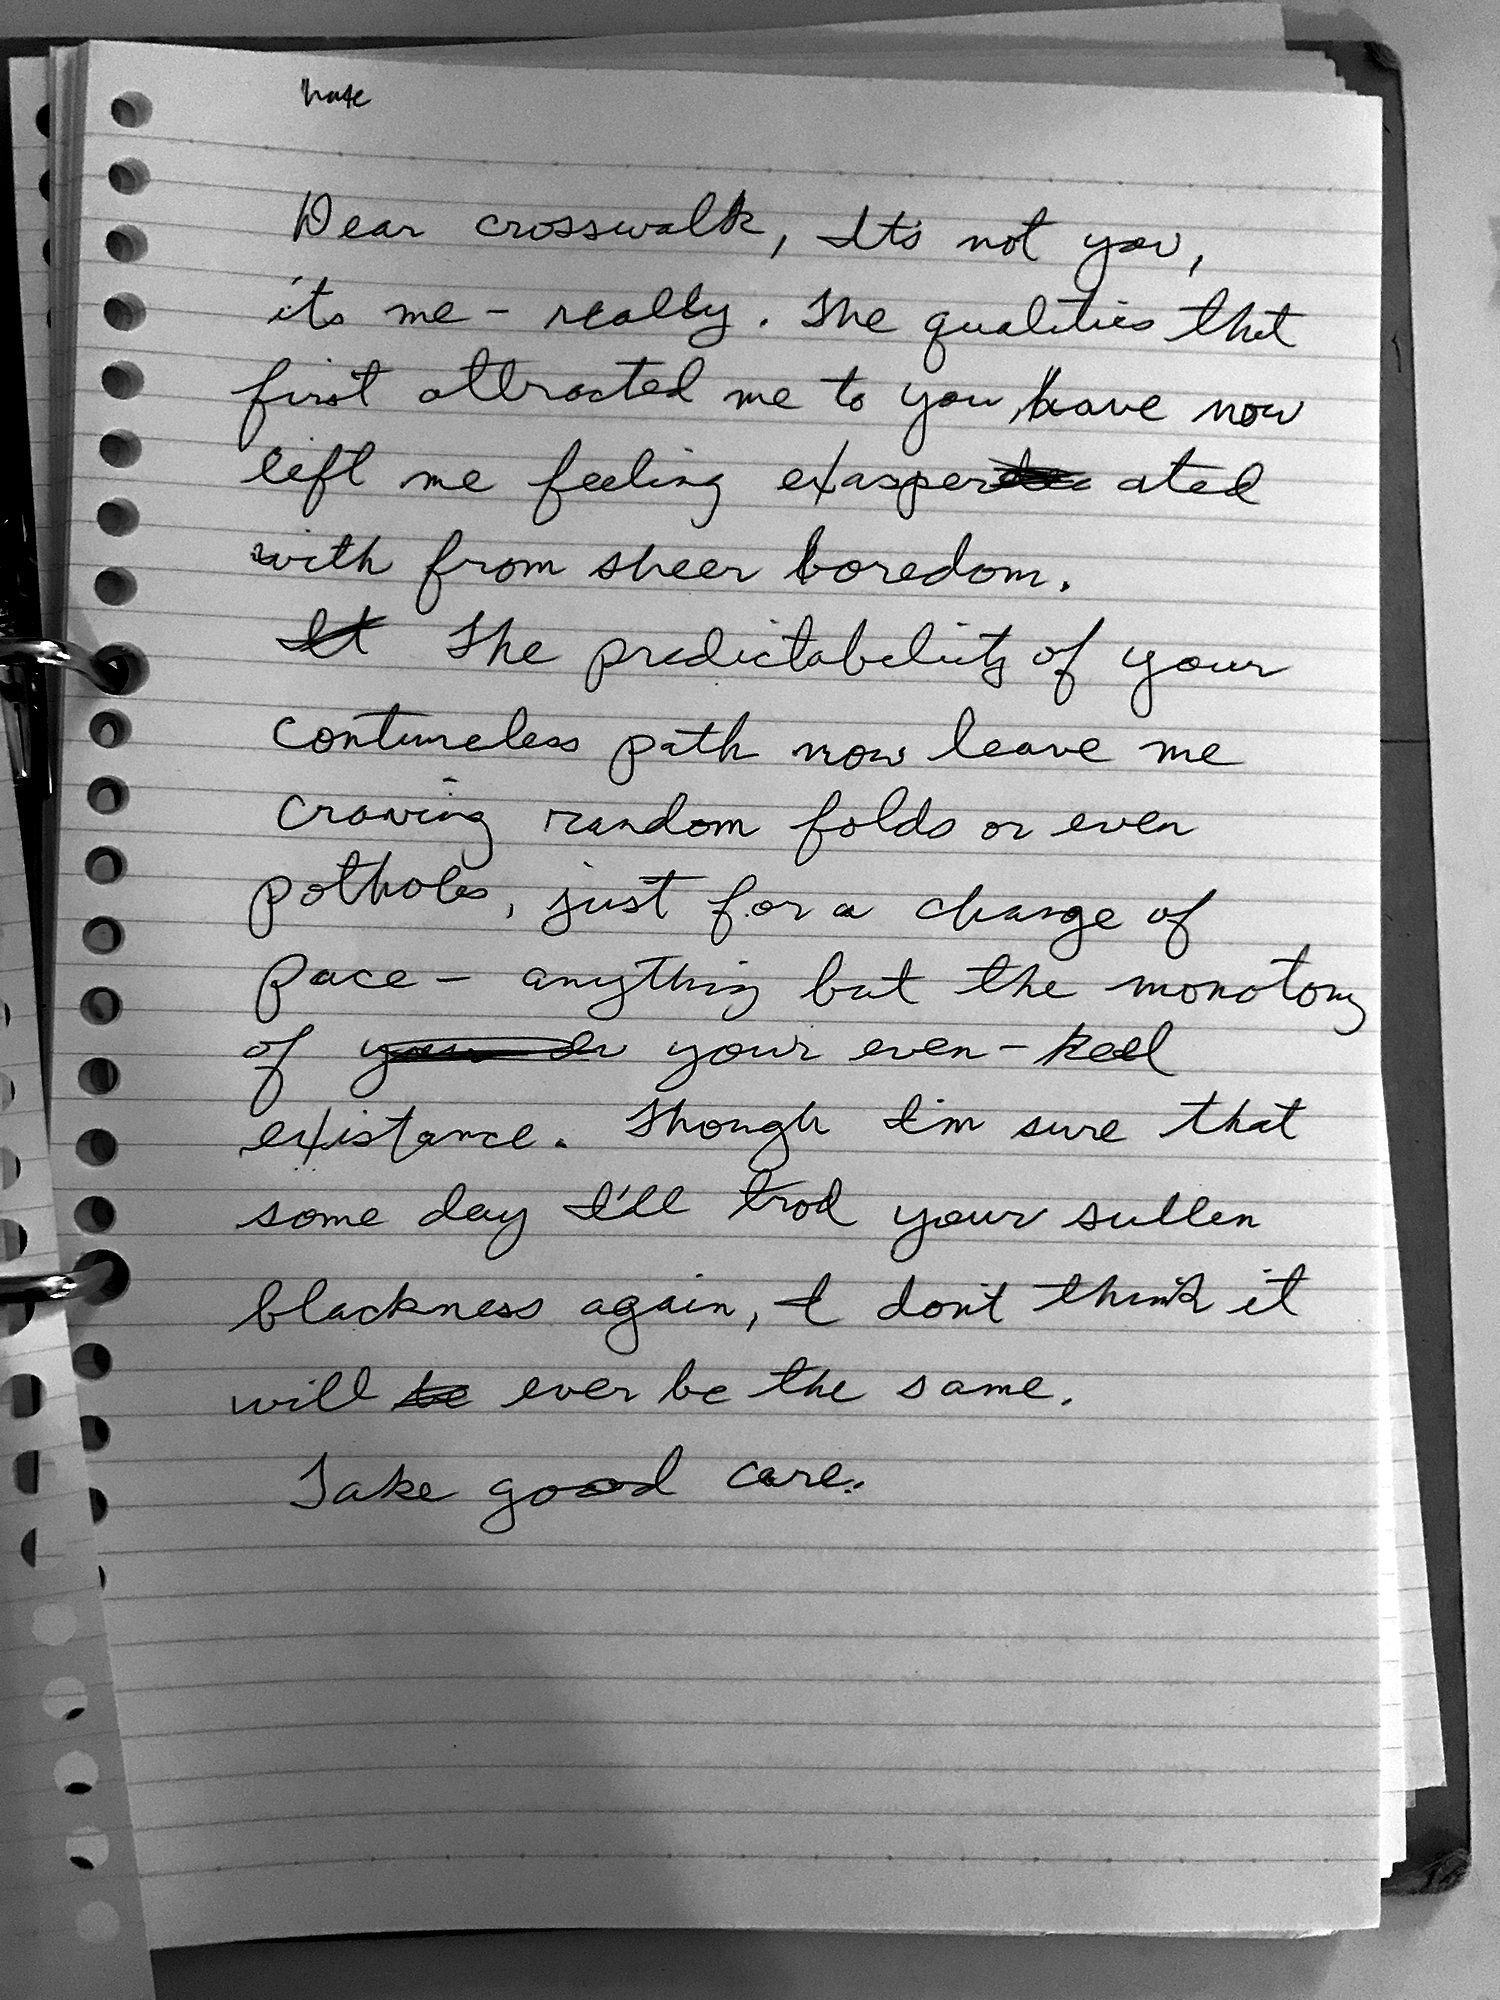 hate
Dear crosswalk, It's not you,
its me - really. The qualities that
first attracted me to you, have now
left me feeling exasperated
with from sheer boredom.
It The predictability of your
contureless path now leave me
craving random folds or even
potholes, just for a change of
pace - anything but the monotony
of your even-keel
existance. Though I'm sure that
some day I'll trod your sullen
blackness again, I don't think it
will be ever be the same.
Take good care.